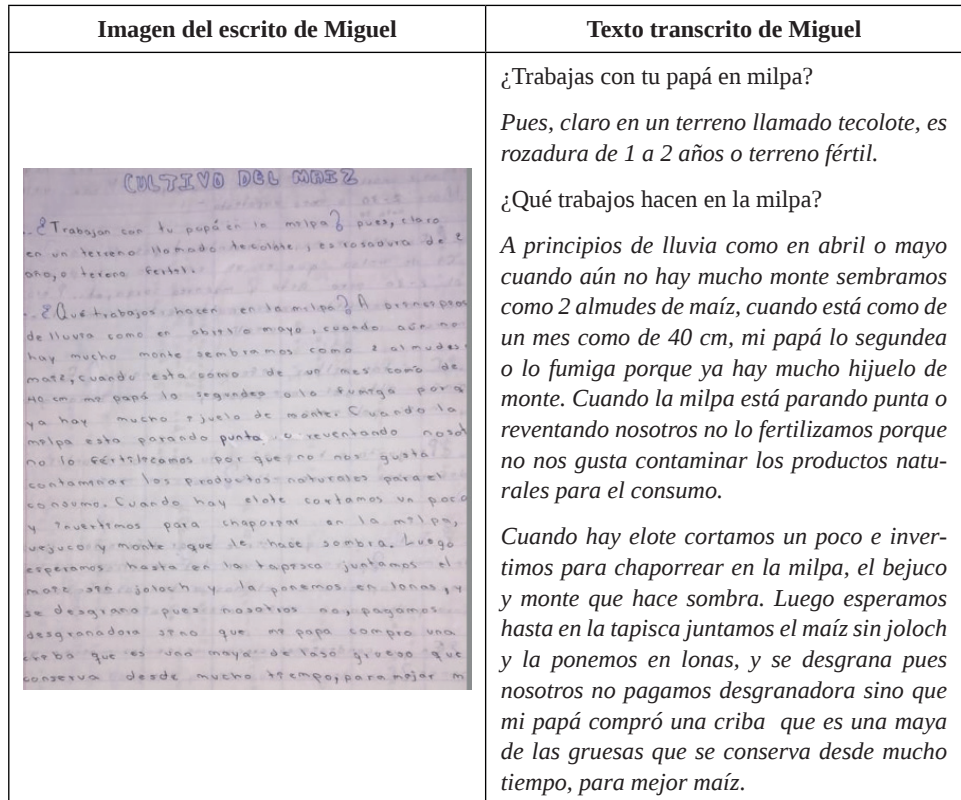 Imagen del escrito de Miguel
Texto transcrito de Miguel
CULTIVO DEL MAIZ
¿Trabajan con tu papá en la milpa? pues, claro
en un terreno llamado tecolote, es rosadura de 2
año, o tereno fertil.
¿Qué trabajos hacen en la milpa? A prinsipios
de lluvia como en abril o mayo, cuando aún no
hay mucho monte sembramos como 2 almudes
maiz, cuando esta como de un mes como de
40 cm mi papá lo segundea o lo fumiga porq
ya hay mucho ijuelo de monte. Cuando la
milpa esta parando punta o reventando nosot
no lo fertilicamos por que no nos gusta
contaminar los productos naturales para el
consumo. Cuando hay elote cortamos un poco
y invertimos para chaporrar en la milpa,
vejuco y monte que le hace sombra. Luego
esperamos hasta en la tapisca juntamos el
maiz sin joloch y la ponemos en lonas, y
se desgrana pues nosotros no, pagamos
desgranadora sino que mi papa compro una
criba que es una maya de laso grueso que
conserva desde mucho tiempo, para mejar m
¿Trabajas con tu papá en milpa?
Pues, claro en un terreno llamado tecolote, es
rozadura de 1 a 2 años o terreno fértil.
¿Qué trabajos hacen en la milpa?
A principios de lluvia como en abril o mayo
cuando aún no hay mucho monte sembramos
como 2 almudes de maíz, cuando está como de
un mes como de 40 cm, mi papá lo segundea
o lo fumiga porque ya hay mucho hijuelo de
monte. Cuando la milpa está parando punta o
reventando nosotros no lo fertilizamos porque
no nos gusta contaminar los productos natu-
rales para el consumo.
Cuando hay elote cortamos un poco e inver-
timos para chaporrear en la milpa, el bejuco
y monte que hace sombra. Luego esperamos
hasta en la tapisca juntamos el maíz sin joloch
y la ponemos en lonas, y se desgrana pues
nosotros no pagamos desgranadora sino que
mi papá compró una criba que es una maya
de las gruesas que se conserva desde mucho
tiempo, para mejor maíz.